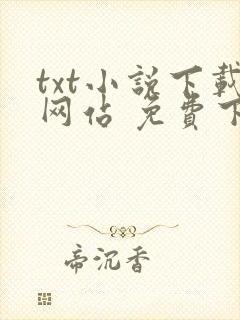 txt小説下載
网佔 免費下
帝沉香